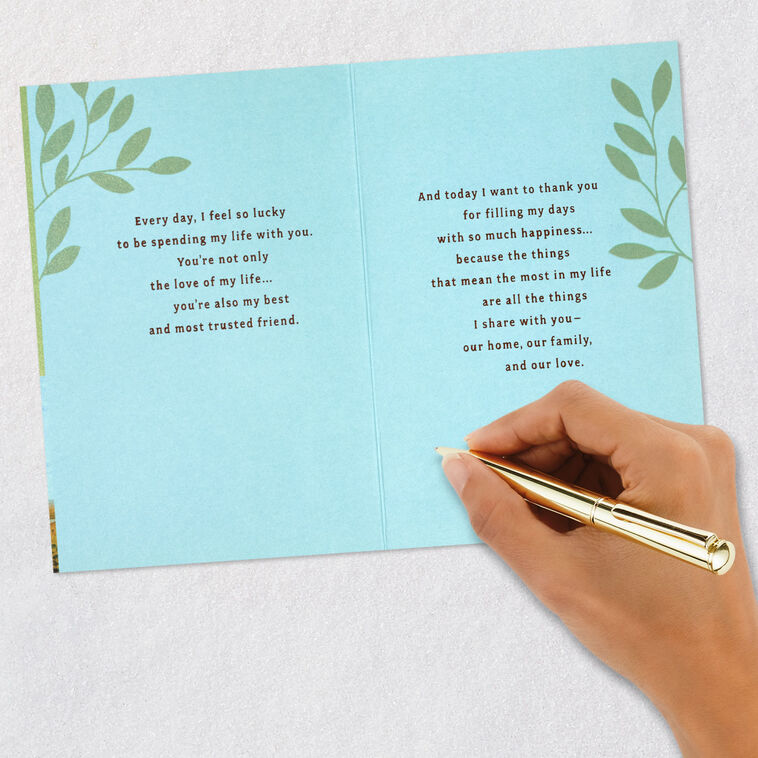 Every day, I feel so lucky
to be spending my life with you.
You're not only
the love of my life...
you're also my best
and most trusted friend.
And today I want to thank you
for filling my days
with so much happiness...
because the things
that mean the most in my life
are all the things
I share with you—
our home, our family,
and our love.